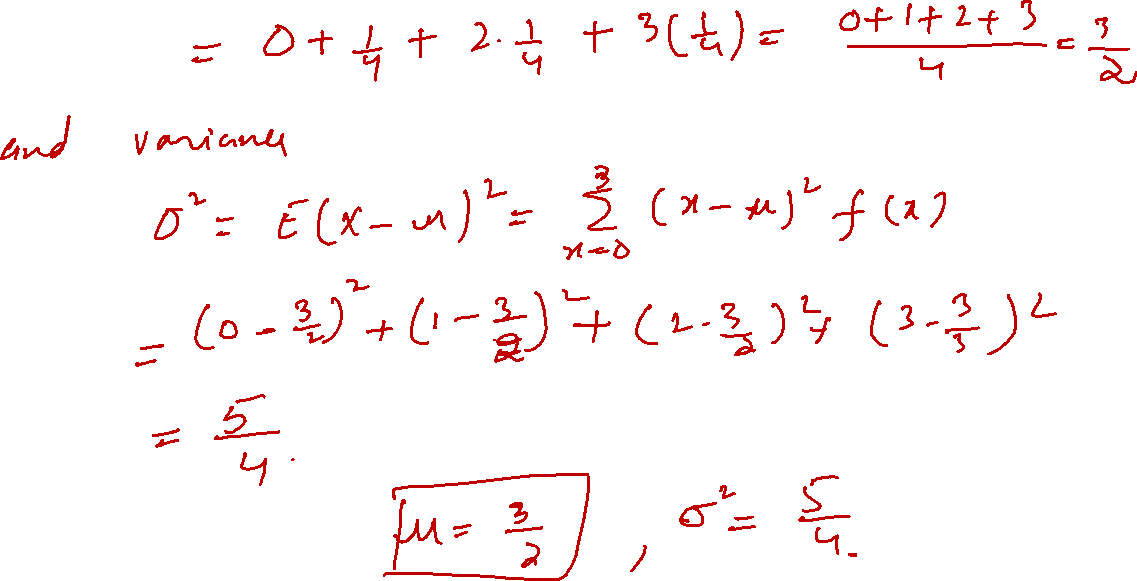 = 0 + 1/4 + 2·1/4 + 3(1/4) = (0+1+2+3)/4 = 3/2
and variance
σ² = E(X-μ)² = Σ_{x=0}^{3} (x-μ)² f(x)
= (0 - 3/2)² + (1 - 3/2)² + (2 - 3/2)² + (3 - 3/3)²
= 5/4.
μ = 3/2 , σ² = 5/4.